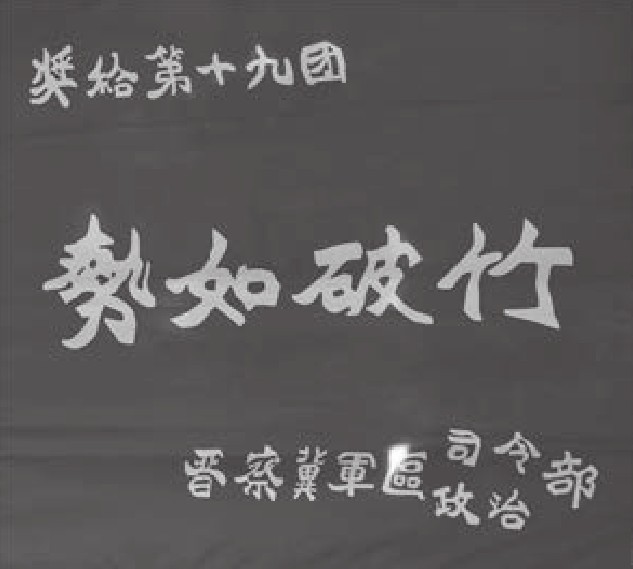 奬給第十九团
勢如破竹
晋察冀軍區司令政治部